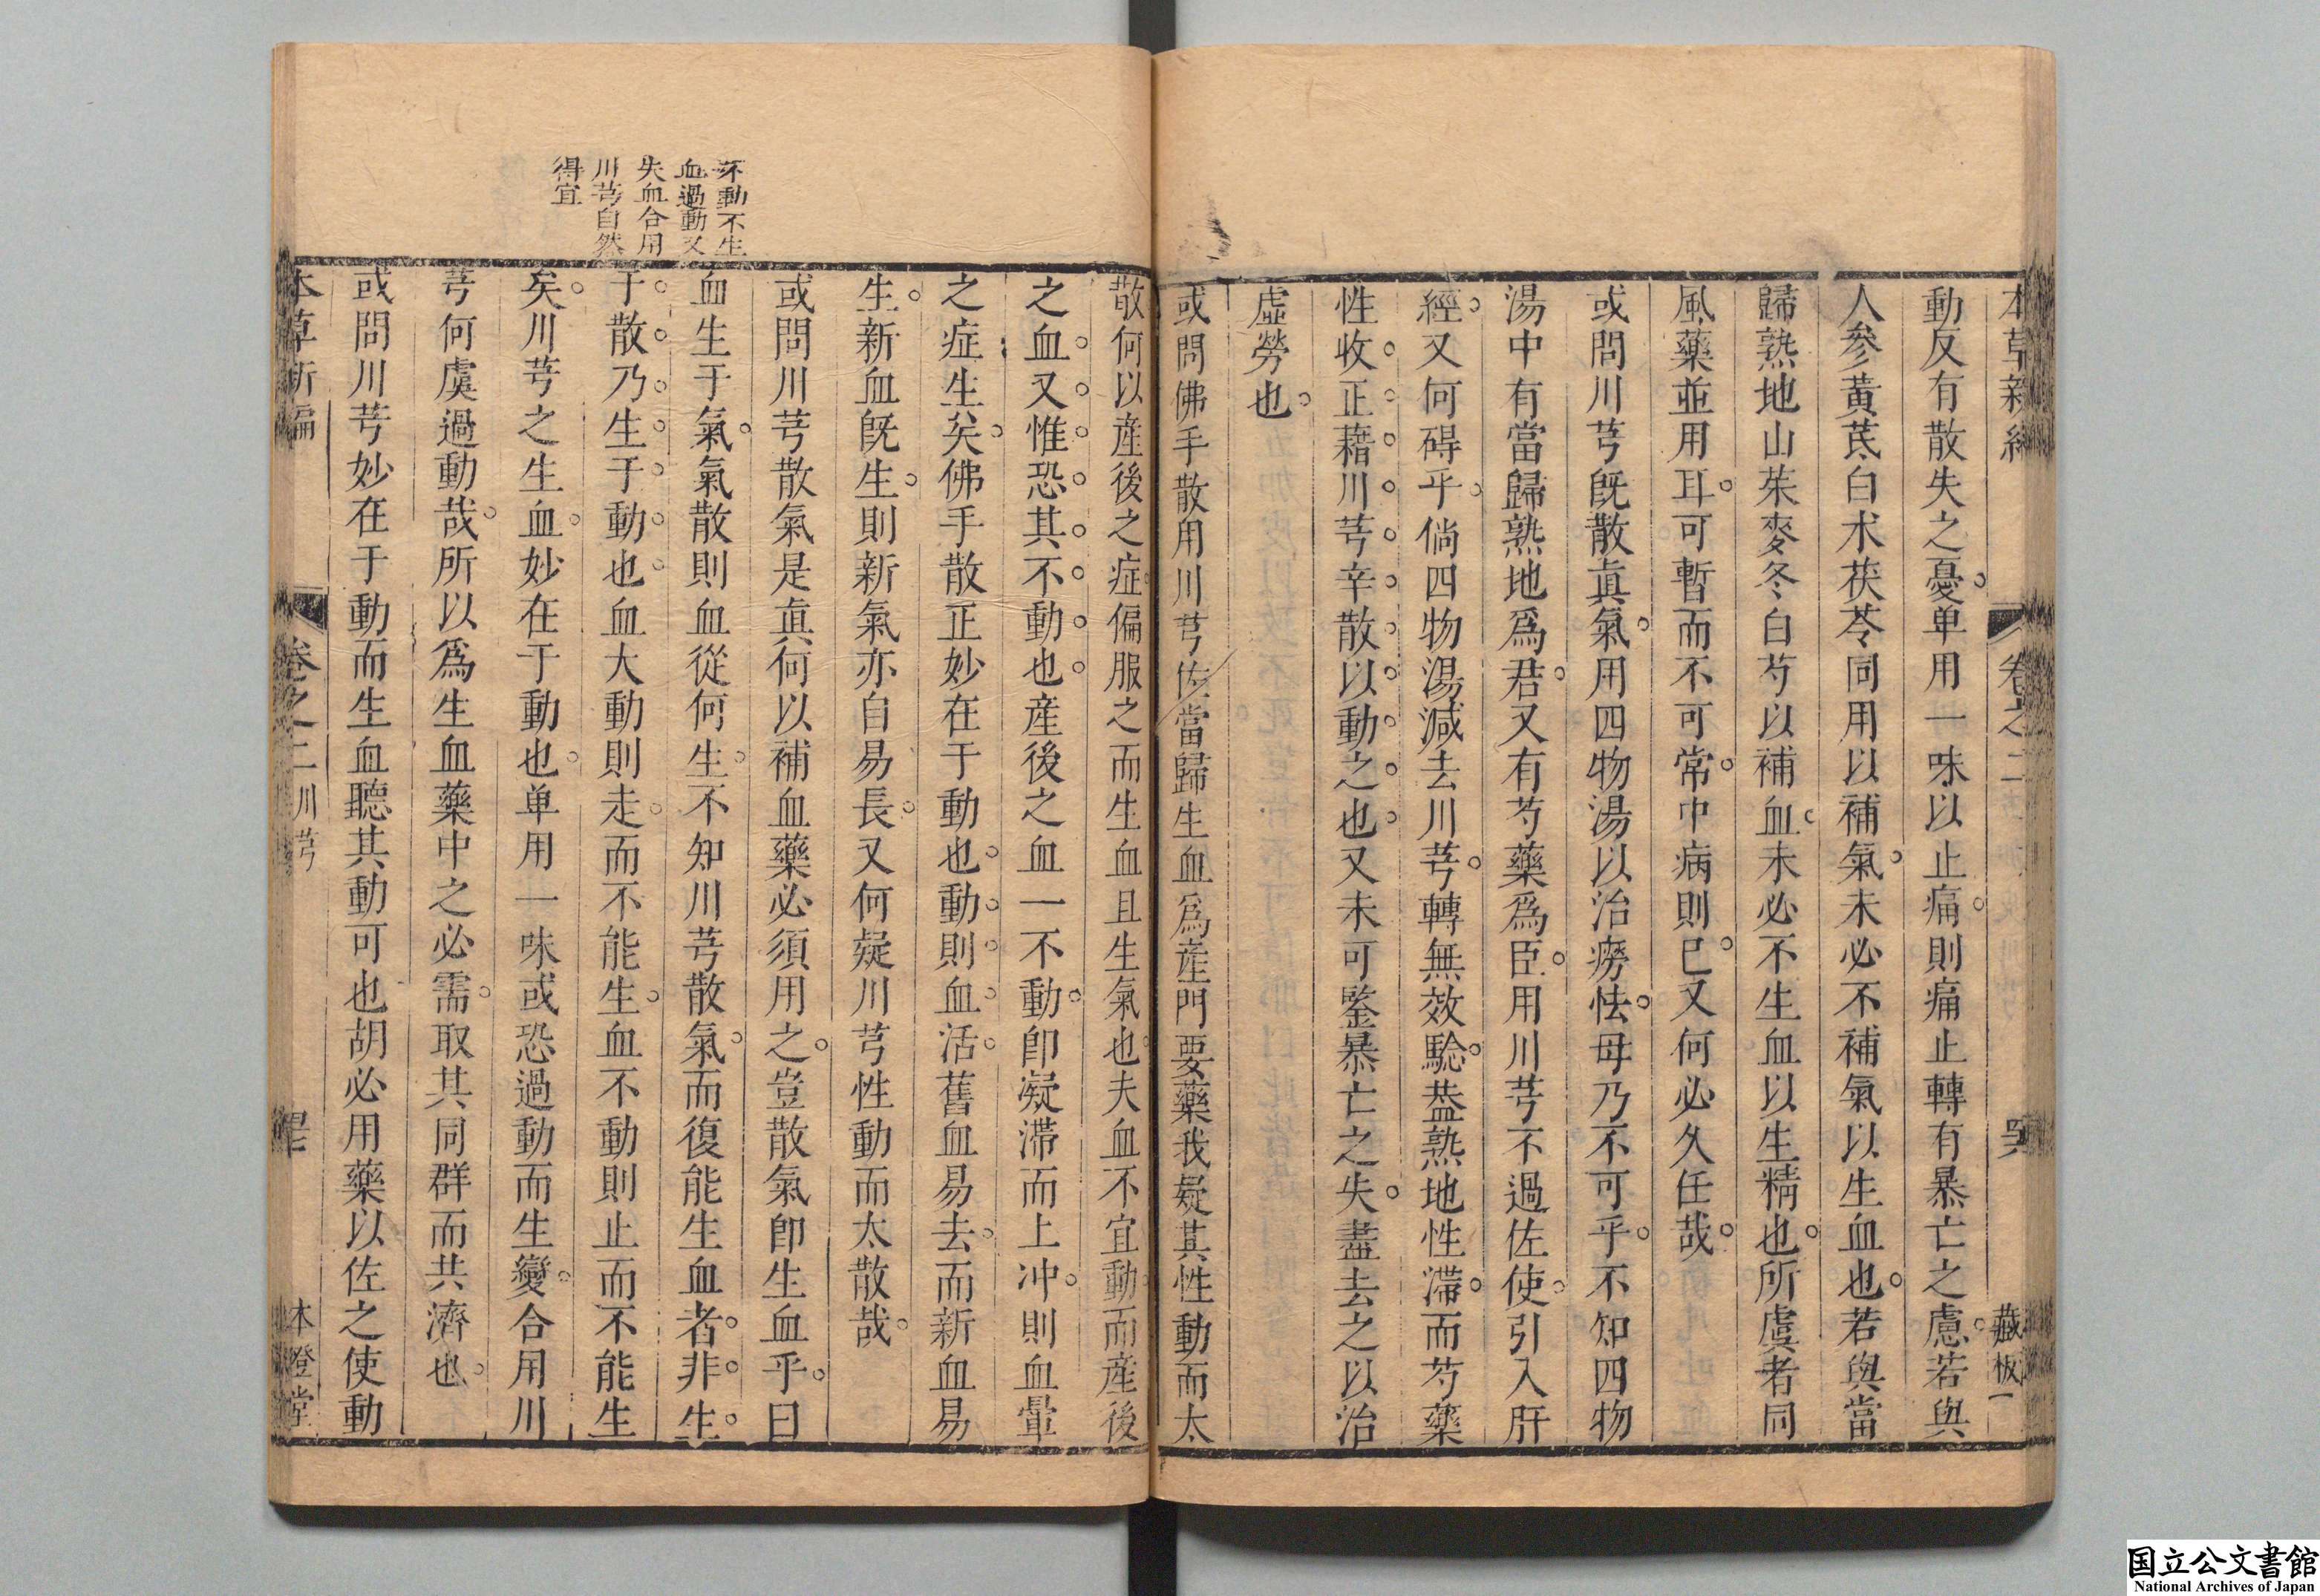 本草新編 卷之二 藏板
動反有散失之憂単用一味以止痛則痛止轉有暴亡之慮若與
人參黃芪白朮茯苓同用以補氣未必不補氣以生血也若與當
歸熟地山茱麥冬白芍以補血未必不生血以生精也所虞者同
風藥並用耳可暫而不可常中病則已又何必久任哉
或問川芎既散眞氣用四物湯以治癆怯毋乃不可乎不知四物
湯中有當歸熟地爲君又有芍藥爲臣用川芎不過佐使引入肝
經又何碍乎倘四物湯減去川芎轉無效驗葢熟地性滯而芍藥
性收正藉川芎辛散以動之也又未可鑒暴亡之失盡去之以治
虛勞也
或問佛手散用川芎佐當歸生血爲産門要藥我疑其性動而太
散何以産後之症偏服之而生血且生氣也夫血不宜動而産後
之血又惟恐其不動也産後之血一不動卽凝滯而上冲則血暈
之症生矣佛手散正妙在于動也動則血活舊血易去而新血易
生新血既生則新氣亦自易長又何疑川芎性動而太散哉
或問川芎散氣是眞何以補血藥必須用之豈散氣卽生血乎曰
血生于氣氣散則血從何生不知川芎散氣而復能生血者非生
于散乃生于動也血大動則走而不能生血不動則止而不能生
矣川芎之生血妙在于動也単用一味或恐過動而生變合用川
芎何虞過動哉所以爲生血藥中之必需取其同群而共濟也
或問川芎妙在于動而生血聽其動可也胡必用藥以佐之使動
不動不生
血過動又
失血合用
川芎自然
得宜
本草新編 卷之二 川芎 本澄堂
国立公文書館
National Archives of Japan